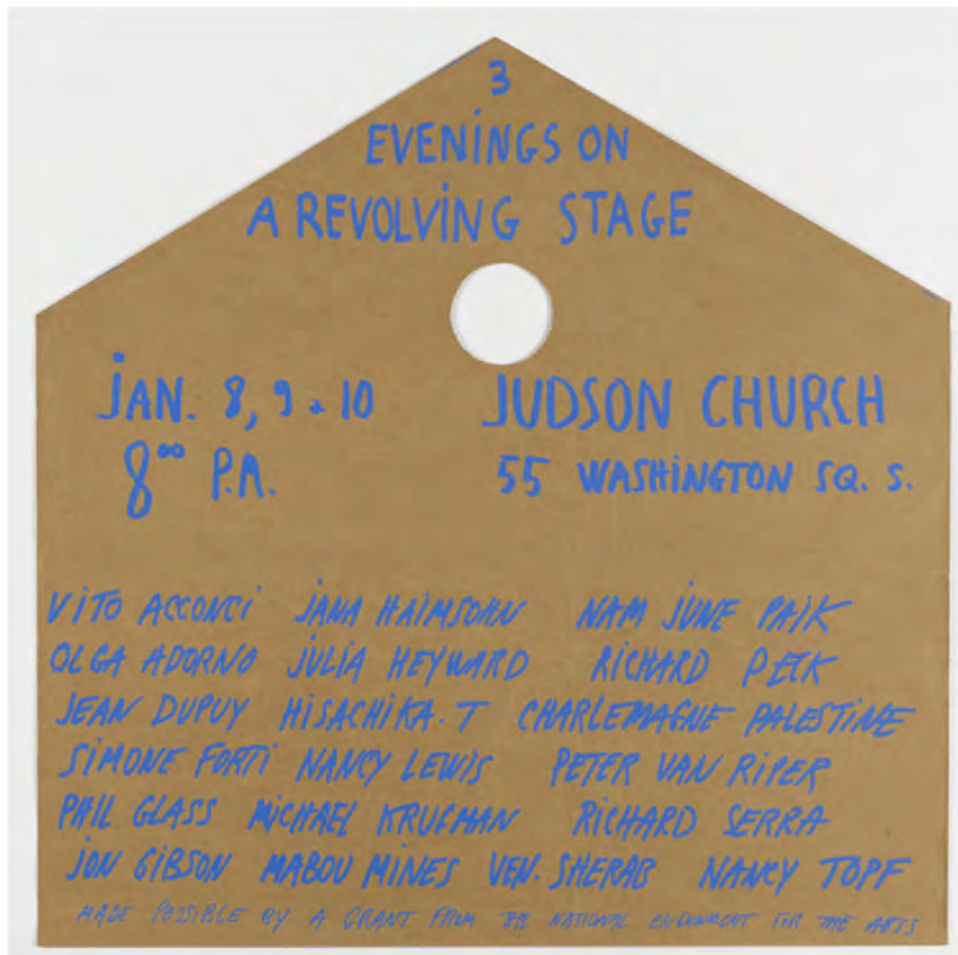 3
EVENINGS ON
A REVOLVING STAGE
JAN. 8, 9 & 10 JUDSON CHURCH
8⁰⁰ P.M. 55 WASHINGTON SQ. S.
VITO ACCONCI JANA HAIMSOHN NAM JUNE PAIK
OLGA ADORNO JULIA HEYWARD RICHARD PECK
JEAN DUPUY HISACHIKA. T CHARLEMAGNE PALESTINE
SIMONE FORTI NANCY LEWIS PETER VAN RIPER
PHIL GLASS MICHAEL KRUGMAN RICHARD SERRA
JON GIBSON MABOU MINES VEN. SHERAB NANCY TOPF
MADE POSSIBLE BY A GRANT FROM THE NATIONAL ENDOWMENT FOR THE ARTS